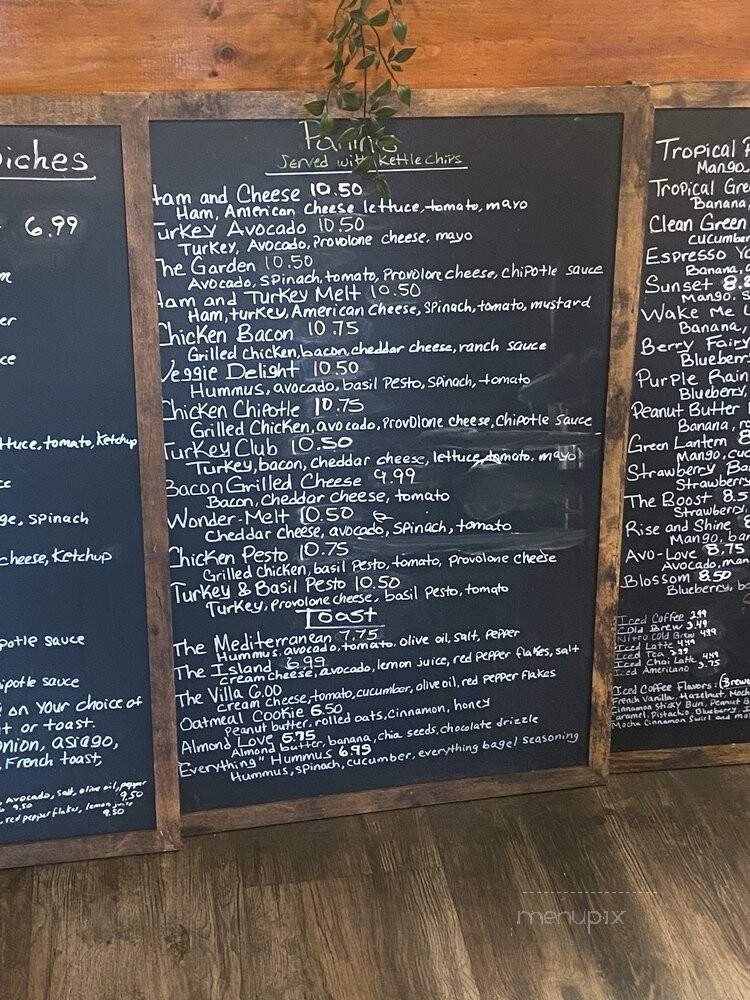 iches
6.99
ttuce, tomato, Ketchup
ge, spinach
cheese, Ketchup
potle sauce
ipotle sauce
on your choice of
t or toast.
nion, asiago,
French toast,
Avocado, salt, olive oil, pepper
9.50
red pepper flakes, lemon juice
9.50
Panini
Served with Kettle Chips
Ham and Cheese 10.50
Ham, American cheese lettuce, tomato, mayo
Turkey Avocado 10.50
Turkey, Avocado, Provolone cheese, mayo
The Garden 10.50
Avocado, spinach, tomato, Provolone cheese, chipotle sauce
Ham and Turkey Melt 10.50
Ham, turkey, American cheese, spinach, tomato, mustard
Chicken Bacon 10.75
Grilled chicken, bacon, cheddar cheese, ranch sauce
Veggie Delight 10.50
Hummus, avocado, basil Pesto, spinach, tomato
Chicken Chipotle 10.75
Grilled Chicken, avocado, Provolone cheese, Chipotle sauce
Turkey Club 10.50
Turkey, bacon, cheddar cheese, lettuce, tomato, mayo
Bacon Grilled Cheese 9.99
Bacon, Cheddar cheese, tomato
Wonder-Melt 10.50
Cheddar cheese, avocado, spinach, tomato
Chicken Pesto 10.75
Grilled chicken, basil Pesto, tomato, provolone cheese
Turkey & Basil Pesto 10.50
Turkey, provolone cheese, basil pesto, tomato
Toast
The Mediterranean 7.75
Hummus, avocado, tomato, olive oil, salt, pepper
The Island 6.99
Cream cheese, avocado, lemon juice, red pepper flakes, salt
The Villa 6.00
Cream cheese, tomato, cucumber, olive oil, red pepper flakes
Oatmeal Cookie 6.50
Peanut butter, rolled oats, cinnamon, honey
Almond Love 6.75
Almond butter, banana, chia seeds, chocolate drizzle
"Everything" Hummus 6.99
Hummus, spinach, cucumber, everything bagel seasoning
Tropical
Mango
Tropical Gre
Banana,
Clean Green
cucumber
Espresso Yo
Banana,
Sunset 8.
Mango, S
Wake Me U
Banana,
Berry Fairy
Blueberr
Purple Rain
Blueberry,
Peanut Butter
Banana,
Green Lantern 8
Mango, cuc
Strawberry Ba
Strawberry
The Boost 8.5
Strawberry,
Rise and Shine
Mango, ban
Avo-Love 8.75
Avocado, man
Blossom 8.50
Blueberry, b
Iced Coffee 2.99
Cold Brew 3.49
Nitro Cold Brew 4.99
Iced Latte 4.49
Iced Tea 2.99
Iced Chai Latte 4.49
Iced Americano 3.75
Iced Coffee Flavors: (Brewe
French Vanilla, Hazelnut, Moc
Cinnamon Sticky Bun, Peanut B
Caramel, Pistachio, Blueberry,
Mocha Cinnamon Swirl and mo
menupix